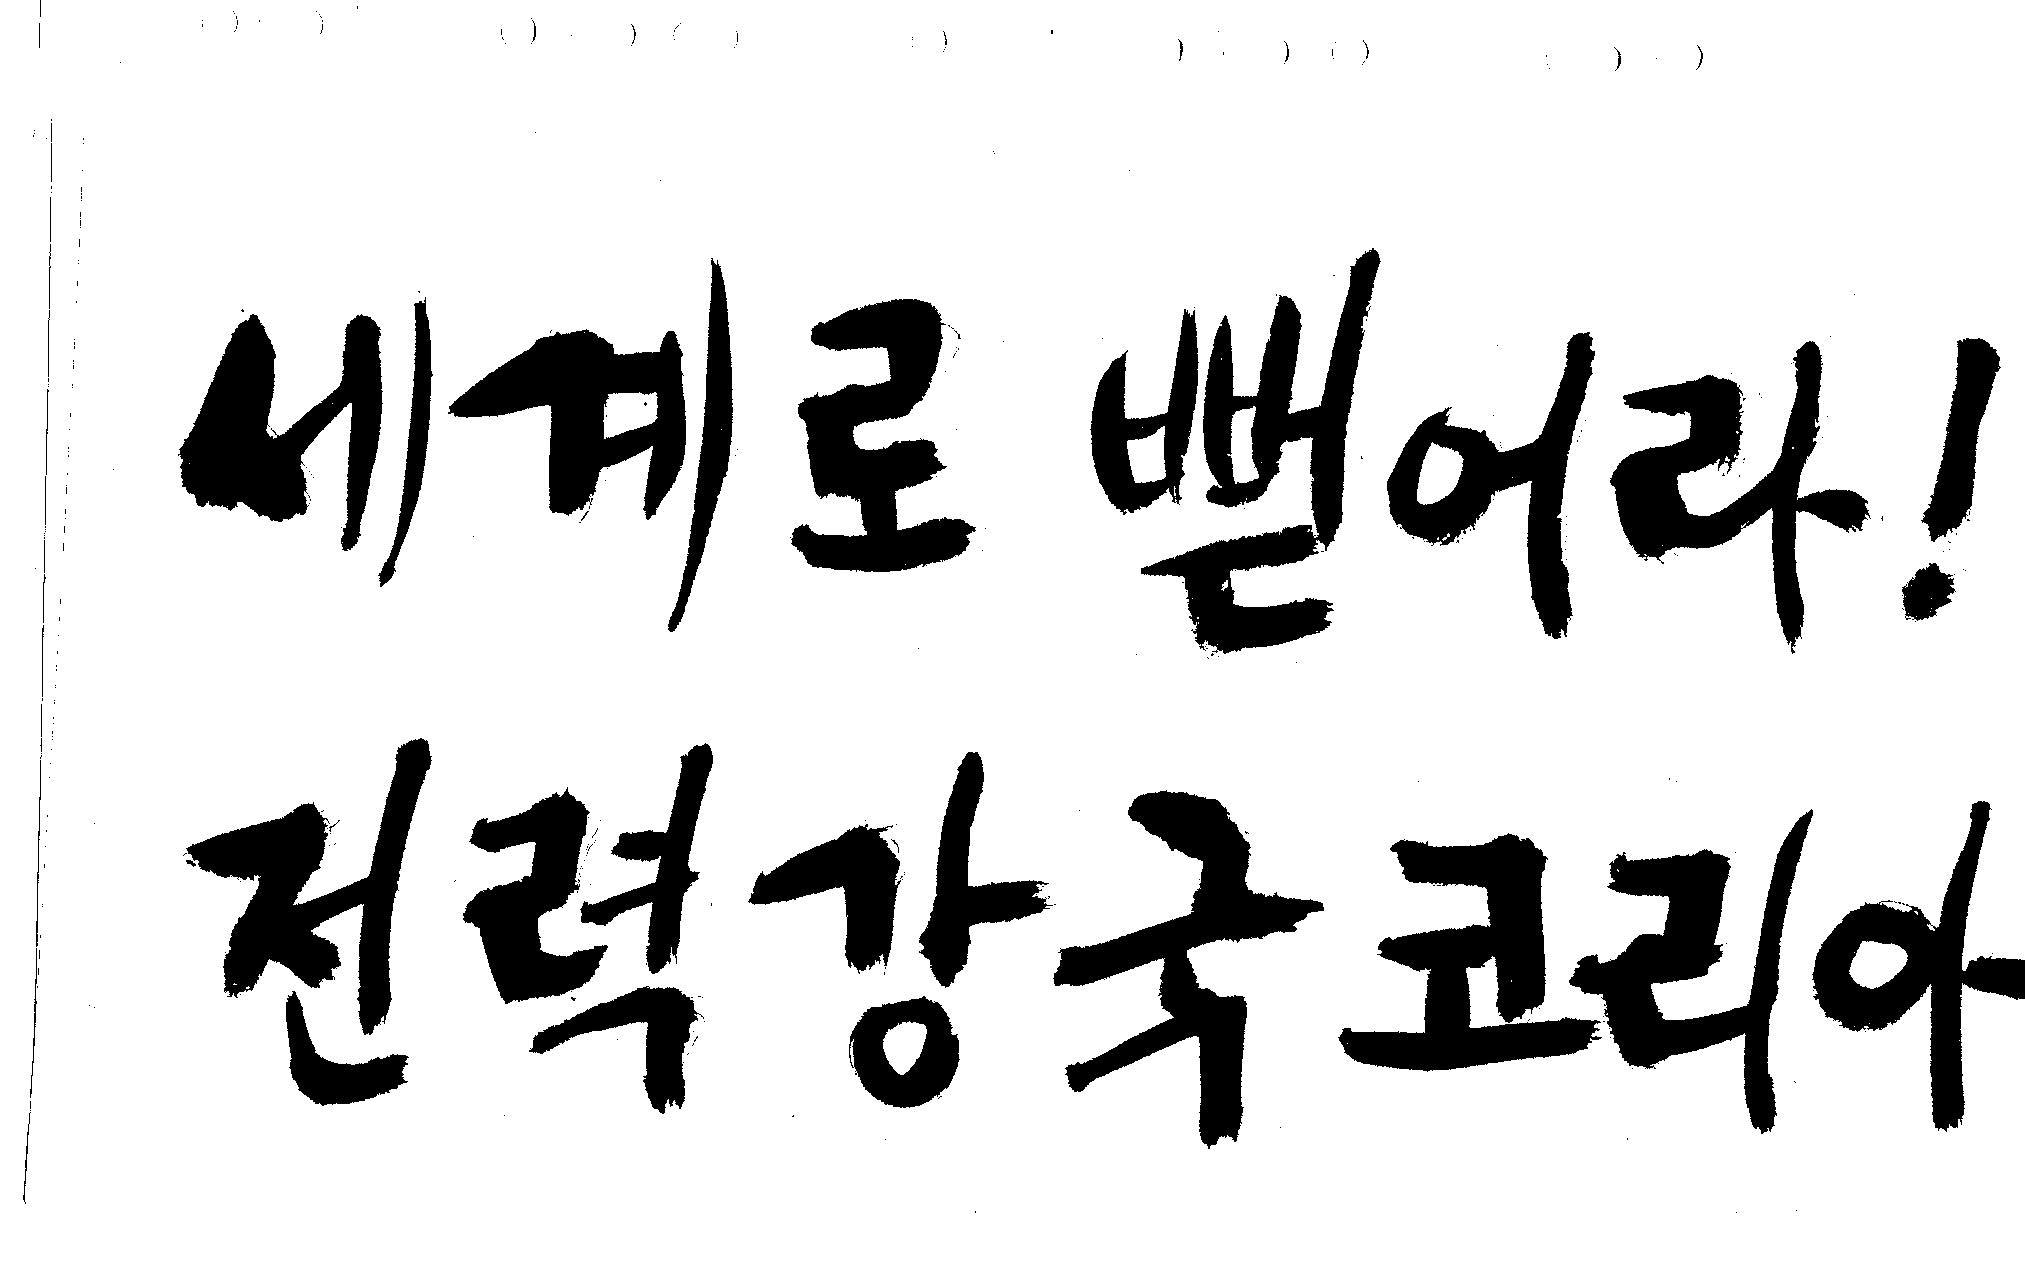 세계로 뻗어라!
전력강국코리아